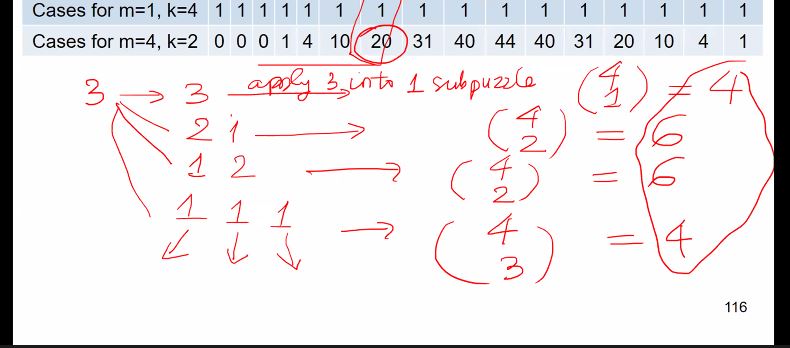 Cases for m=1, k=4 1 1 1 1 1 1 1 1 1 1 1 1 1 1 1 1
Cases for m=4, k=2 0 0 0 1 4 10 20 31 40 44 40 31 20 10 4 1
3 → 3 apply 3 into 1 subpuzzle → (4 1) = 4
2 1 → (4 2) = 6
1 2 → (4 2) = 6
1 1 1 → (4 3) = 4
116